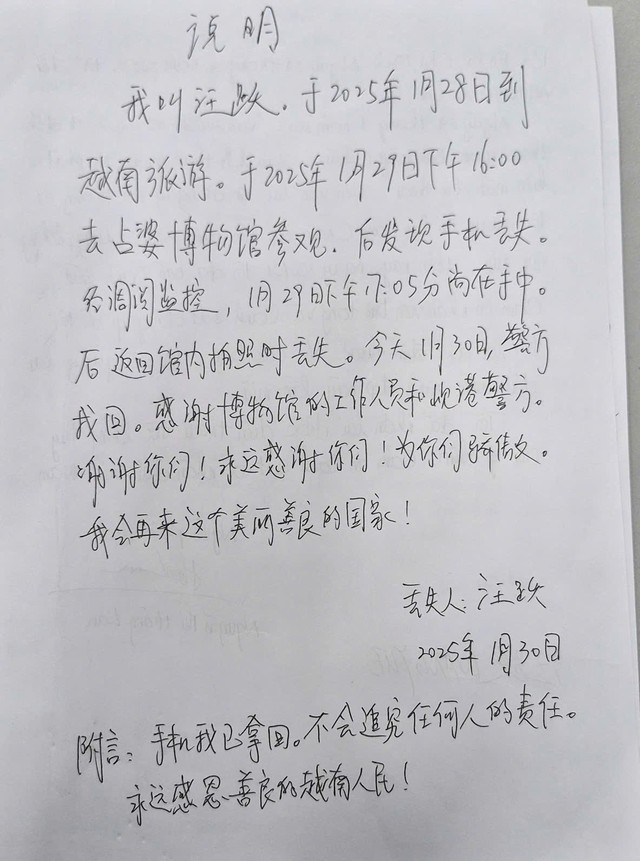 说明
我叫汪跃，于2025年1月28日到
越南旅游。于2025年1月29日下午16:00
去占婆博物馆参观，后发现手机丢失。
经调阅监控，1月29日下午17:05分尚在手中。
后返回馆内拍照时丢失。今天1月30日，警方
找回。感谢博物馆的工作人员和岘港警方。
谢谢你们！永远感谢你们！为你们骄傲。
我会再来这个美丽善良的国家！
丢失人：汪跃
2025年1月30日
附言：手机我已拿回。不会追究任何人的责任。
永远感恩善良的越南人民！